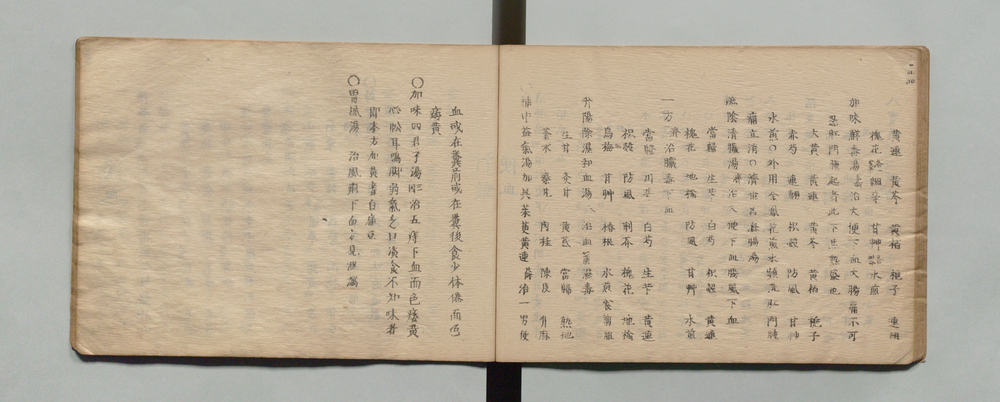 黄連 黄芩 黄栢 梔子 連翹
槐花 細辛 甘艸 水煎
加味解毒湯 治大便下血大腸痛不可
忍肛門腫起者此下焦熱盛也
大黄 黄連 黄芩 黄栢 梔子
赤芍 連翹 枳殼 防風 甘艸
水煎〇外用金鳳花煎水頻洗肛門腫
痛立消〇濟世呂 腸湯
滋陰清臟湯 治大便下血腸風下血
當歸 生芐 白芍 枳殼 黄連
槐花 地楡 防風 甘艸 水煎
一方 治臟毒下血
當歸 川芎 白芍 生芐 黄連
枳殼 防風 荊芥 槐花 地楡
烏梅 甘艸 椿根 水煎食前服
升陽除濕和血湯 治血
生甘 炙甘 黄芪 當歸 熟地
蒼朮 秦艽 肉桂 陳皮 升麻
補中益氣湯加吴茱萸黄連 治一男便
血或在糞前或在糞後食少体倦面色
痿黄
〇加味四君子湯 治五痔下血而色痿黄
心忪耳鳴脚弱氣乏口淡食不知味者
即本方加黄耆白扁豆
〇胃風湯 治風 下血 見泄瀉